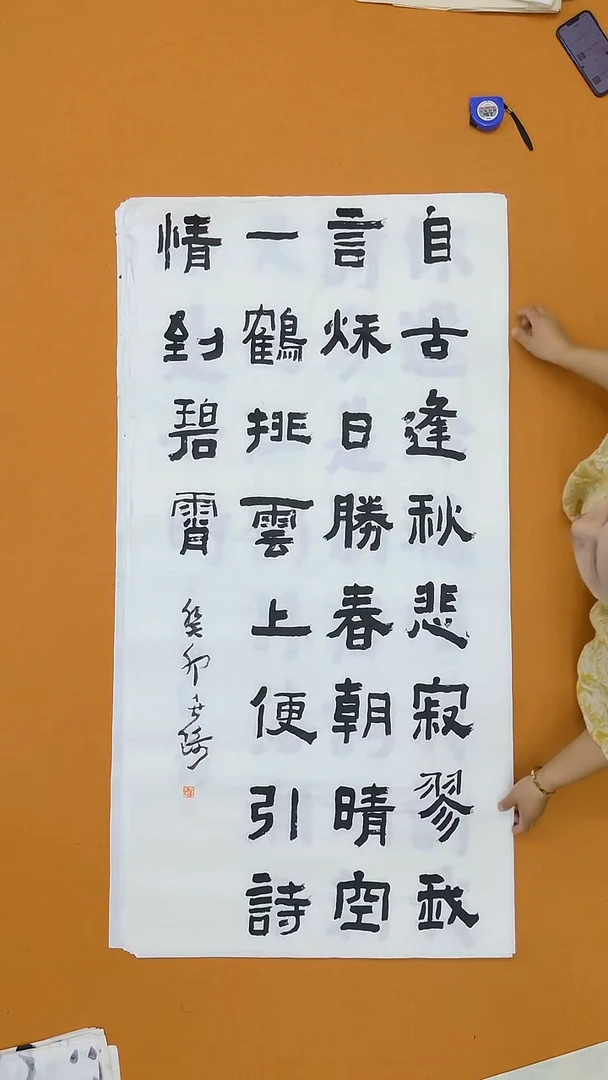 自古逢秋悲寂翏我
言秌日勝春朝晴空
一鶴排雲上便引詩
情到碧霄
癸卯